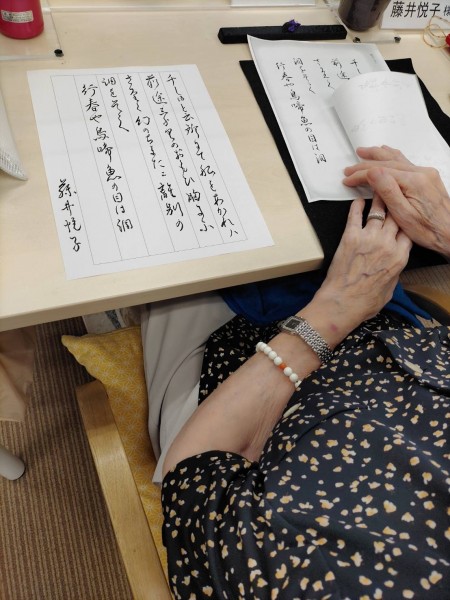 千しゆと云所にて船をあかれハ
前途三千里のおもひ胸にふ
さかりて幻のちまたに離別の
泪をそゝく
行春や鳥啼魚の目は泪
藤井悦子
藤井悦子様
千し
前途
さかり
泪をそゝく
行春や鳥啼魚の目は泪